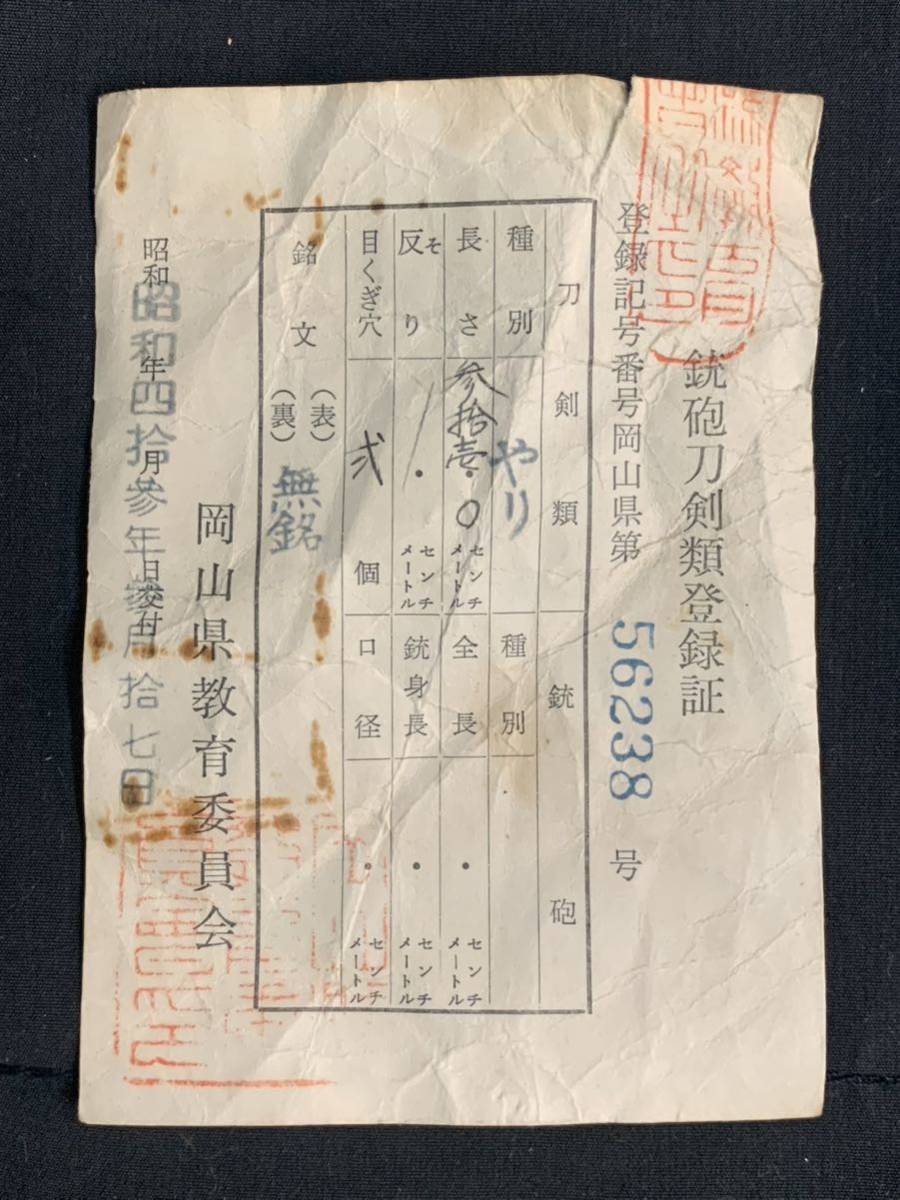 銃砲刀剣類登録証
登録記号番号岡山県第 56238 号
刀剣類 銃砲
種別 やり 種別
長さ 参拾壱・0 センチメートル 全長 ・ センチメートル
反り そ ・ センチメートル 銃身長 ・ センチメートル
目くぎ穴 弐 個 口径 ・ センチメートル
銘文 (表) 無銘
(裏)
岡山県教育委員会
昭和 年 月 日交付
昭和四拾参年参月拾七日